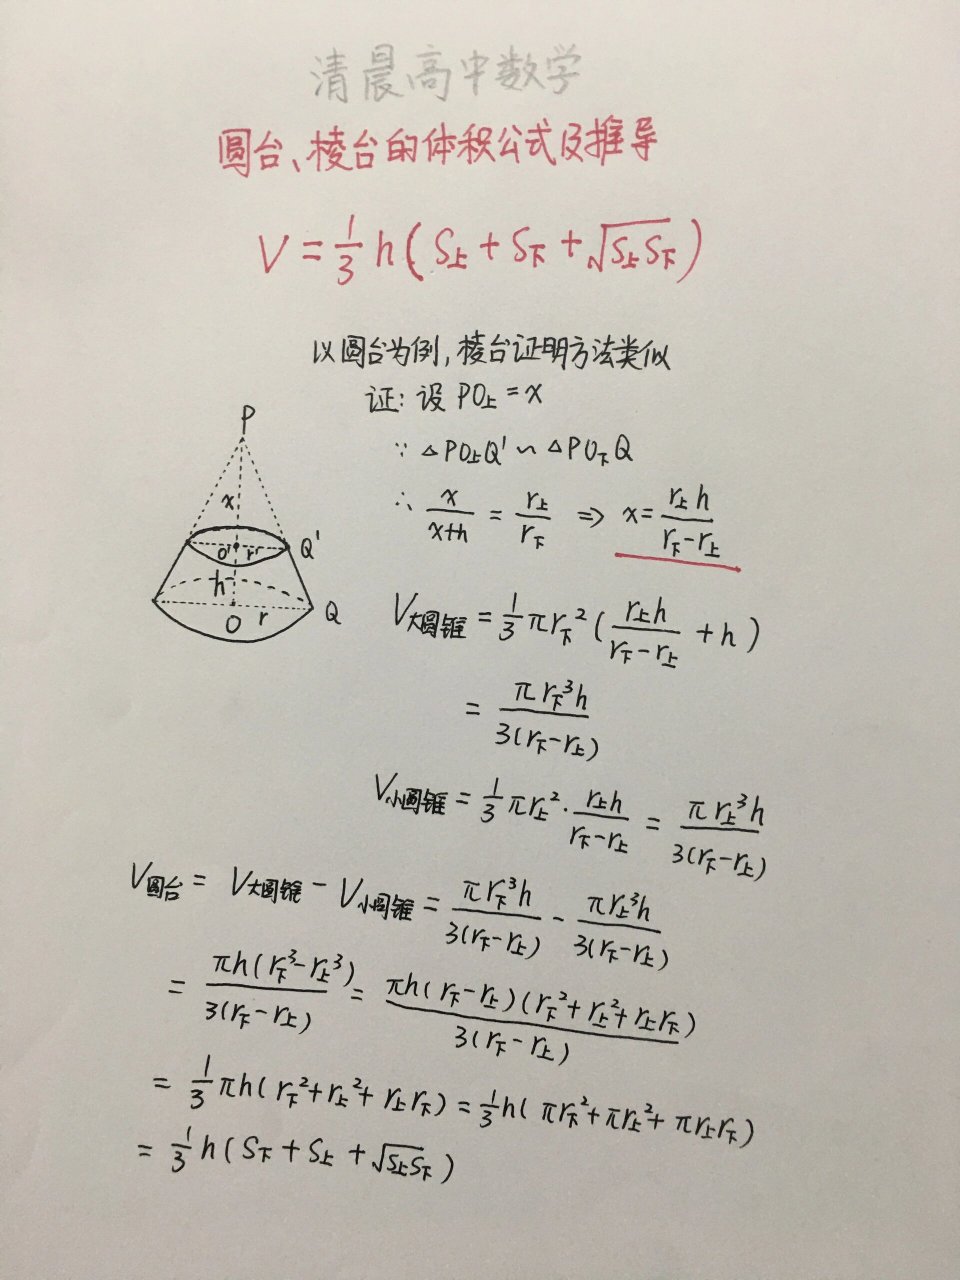 清晨高中数学
圆台、棱台的体积公式及推导
V = 1/3 h ( S上 + S下 + √(S上S下) )
以圆台为例，棱台证明方法类似
证: 设 PO上 = x
∵ △PO上Q' ∽ △PO下Q
∴ x/(x+h) = r上/r下 ⇒ x = r上h/(r下-r上)
P
x
O' r' Q'
h
O r Q
V大圆锥 = 1/3 πr下² ( r上h/(r下-r上) + h )
= πr下³h/3(r下-r上)
V小圆锥 = 1/3 πr上² · r上h/(r下-r上) = πr上³h/3(r下-r上)
V圆台 = V大圆锥 - V小圆锥 = πr下³h/3(r下-r上) - πr上³h/3(r下-r上)
= πh(r下³-r上³)/3(r下-r上) = πh(r下-r上)(r下²+r上²+r上r下)/3(r下-r上)
= 1/3 πh( r下²+r上²+ r上r下 ) = 1/3 h( πr下²+πr上²+ πr上r下 )
= 1/3 h ( S下 + S上 + √(S上S下) )